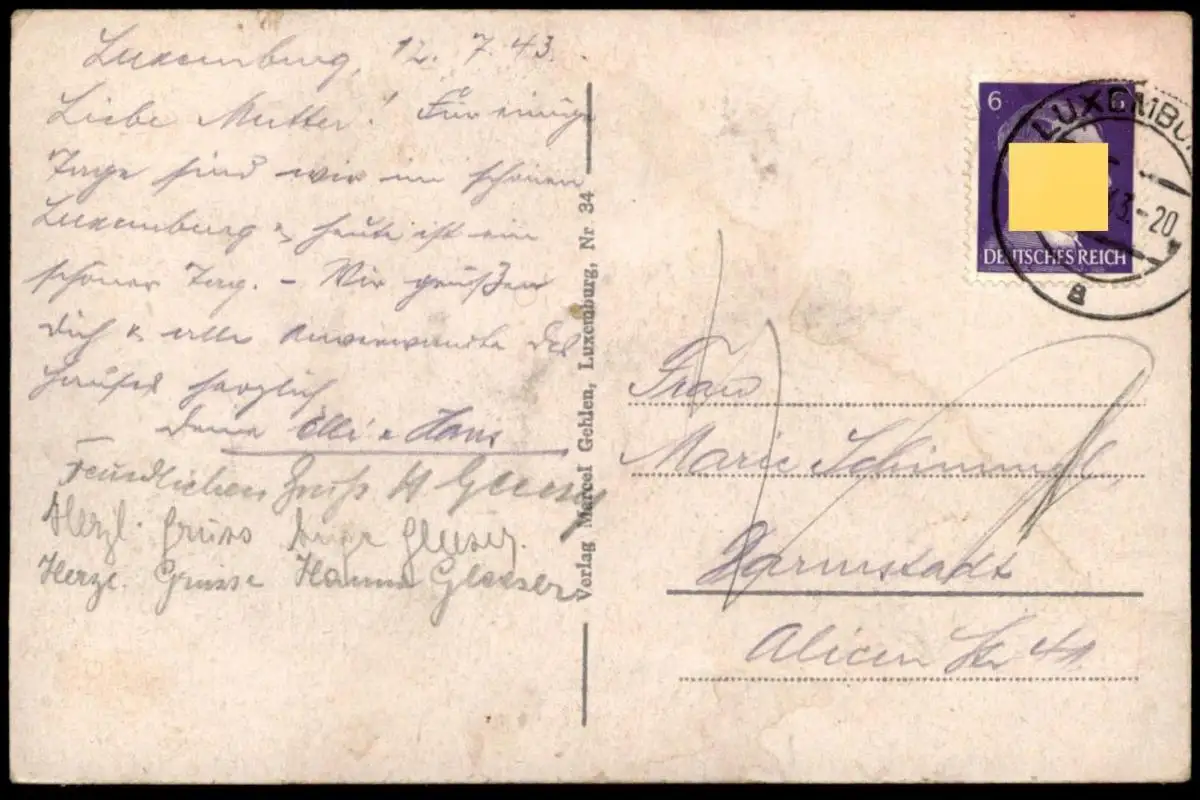 Luxemburg, 12. 7. 43.
Liebe Mutter! Für einige
Tage sind wir im schönen
Luxemburg & heute ist ein
schöner Tag. - Wir grüßen
Dich & alle Anverwandte des
Hauses herzlich
Deine Elli & Hans
Freundlichen Gruß H
Herzl. Gruss Gleeser.
Herzl. Grüsse Hanna Gleeser
Verlag Marcel Gehlen, Luxemburg, Nr 34
6 6
DEUTSCHES REICH
LUXEMBU
3.-20
a
Frau
Marie Schimmel
Darmstadt
Alicen Str 41